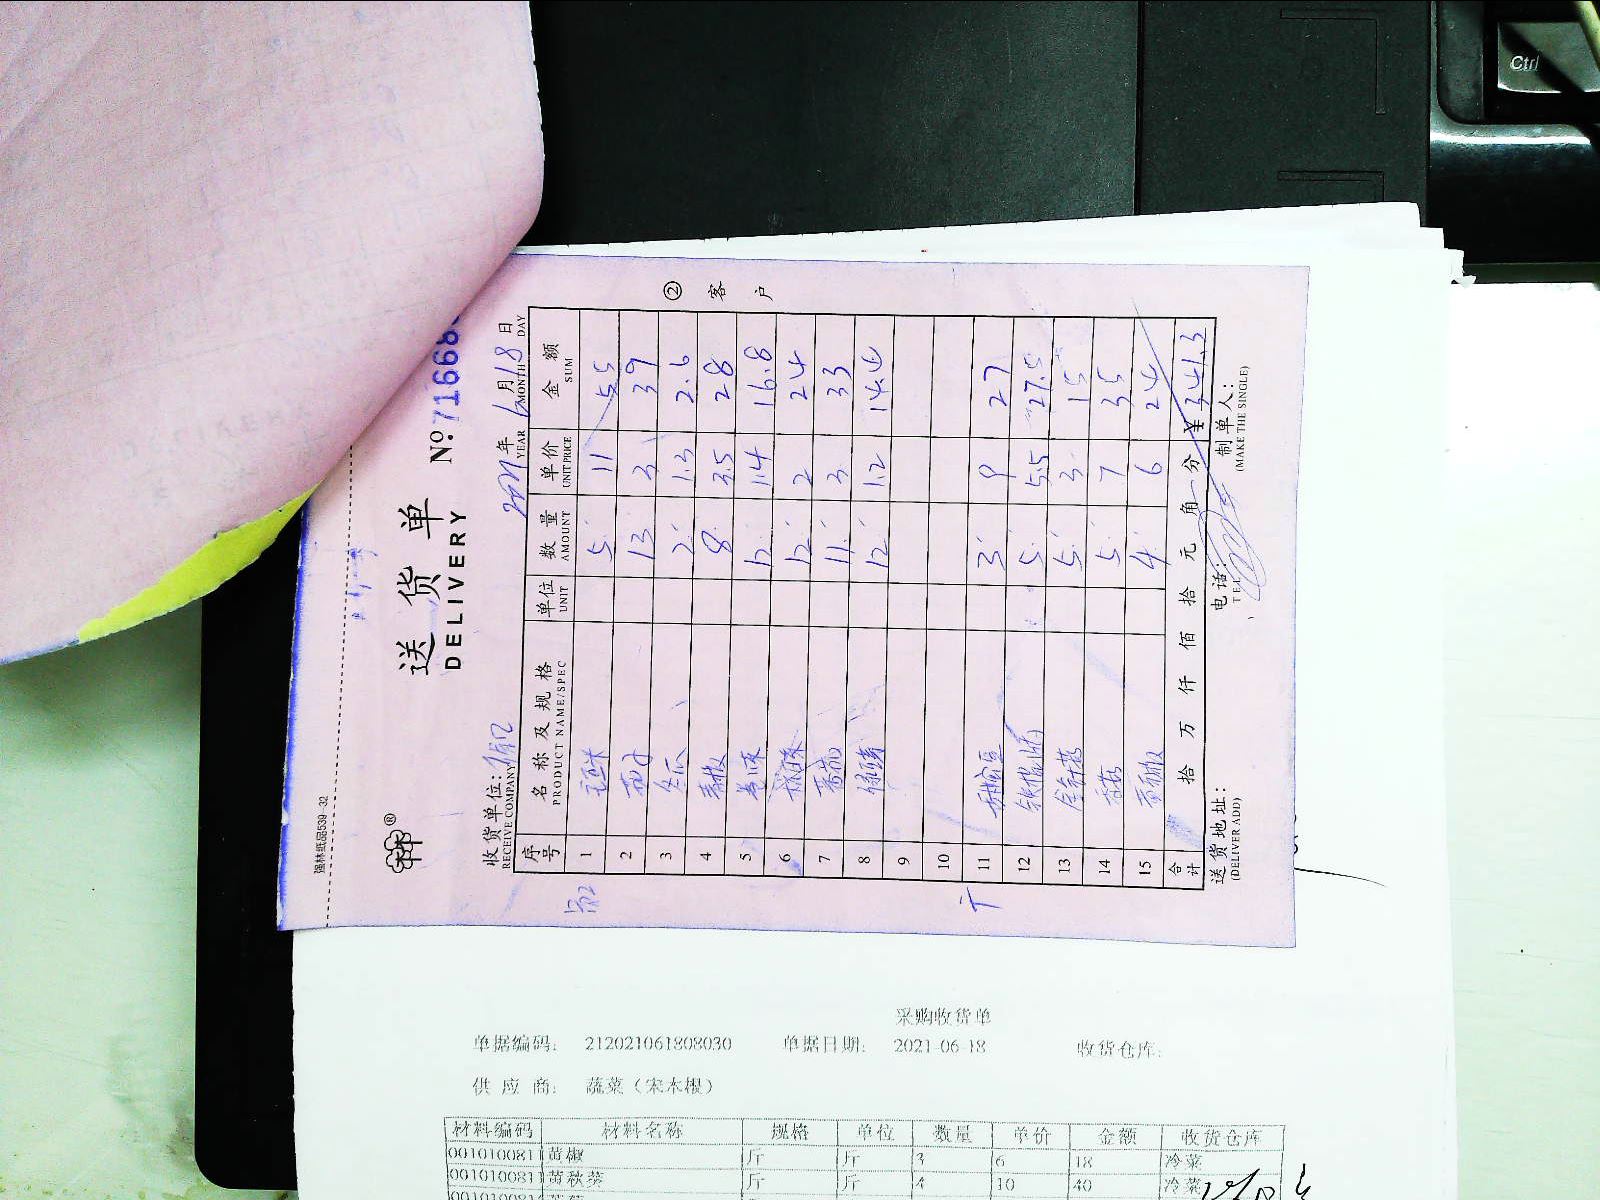 强林纸品539-32
祥®
送货单
DELIVERY
№:71668
收货单位:
RECEIVE COMPANY
2021年6月18日
YEAR MONTH DAY
序号 名称及规格 单位 数量 单价 金额
PRODUCT NAME/SPEC UNIT AMOUNT UNIT PRICE SUM
1 玉米 5 11 55
2 13 3 39
3 冬瓜 2 1.3 2.6
4 青椒 8 3.5 28
5 12 1.4 16.8
6 12 2 24
7 番茄 11 3 33
8 12 1.2 14.4
9
10
11 3 9 27
12 5 5.5 27.5
13 金针菇 5 3 15
14 5 7 35
15 4 6 24
合计 拾 万 仟 佰 拾 元 角 分 ¥341.3
送货地址:
(DELIVER ADD)
电话:
TEL
制单人:
(MAKE THE SINGLE)
② 客户
采购收货单
单据编码: 212021061808030 单据日期: 2021-06-18 收货仓库:
供应商: 蔬菜（宋木根）
材料编码 材料名称 规格 单位 数量 单价 金额 收货仓库
0010100811 黄椒 斤 斤 3 6 18 冷菜
0010100811 黄秋葵 斤 斤 4 10 40 冷菜
Ctrl